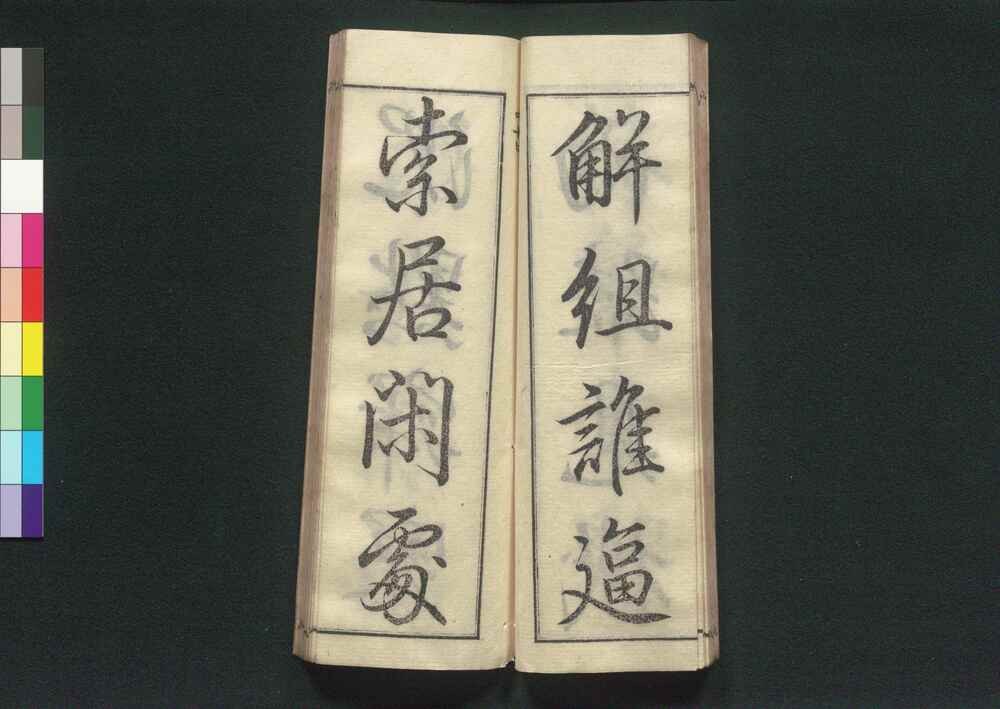 解組誰逼
索居閑處